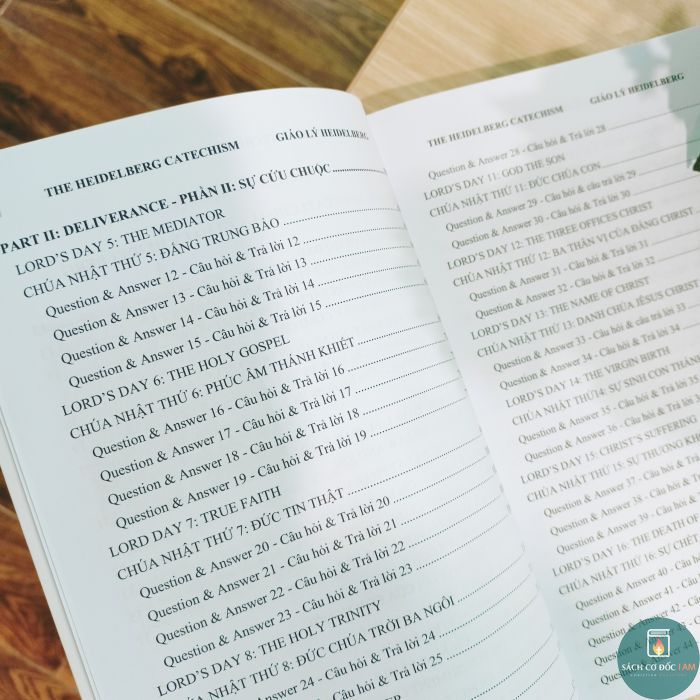 THE HEIDELBERG CATECHISM GIÁO LÝ HEIDELBERG
PART II: DELIVERANCE - PHẦN II: SỰ CỨU CHUỘC
LORD'S DAY 5: THE MEDIATOR
CHÚA NHẬT THỨ 5: ĐẤNG TRUNG BẢO
Question & Answer 12 - Câu hỏi & Trả lời 12
Question & Answer 13 - Câu hỏi & Trả lời 13
Question & Answer 14 - Câu hỏi & Trả lời 14
Question & Answer 15 - Câu hỏi & Trả lời 15
LORD'S DAY 6: THE HOLY GOSPEL
CHÚA NHẬT THỨ 6: PHÚC ÂM THÁNH KHIẾT
Question & Answer 16 - Câu hỏi & Trả lời 16
Question & Answer 17 - Câu hỏi & Trả lời 17
Question & Answer 18 - Câu hỏi & Trả lời 18
Question & Answer 19 - Câu hỏi & Trả lời 19
LORD DAY 7: TRUE FAITH
CHÚA NHẬT THỨ 7: ĐỨC TIN THẬT
Question & Answer 20 - Câu hỏi & Trả lời 20
Question & Answer 21 - Câu hỏi & Trả lời 21
Question & Answer 22 - Câu hỏi & Trả lời 22
Question & Answer 23 - Câu hỏi & Trả lời 23
LORD'S DAY 8: THE HOLY TRINITY
CHÚA NHẬT THỨ 8: ĐỨC CHÚA TRỜI BA NGÔI
Question & Answer 24 - Câu hỏi & Trả lời 24
Answer 25 - Câu hỏi & Trả lời 25
THE HEIDELBERG CATECHISM GIÁO LÝ HEIDELBERG
Question & Answer 28 - Câu hỏi & Trả lời 28
LORD'S DAY 11: GOD THE SON
CHÚA NHẬT THỨ 11: ĐỨC CHÚA CON
Question & Answer 29 - Câu hỏi & câu trả lời 29
Question & Answer 30 - Câu hỏi & Trả lời 30
LORD'S DAY 12: THE THREE OFFICES CHRIST
CHÚA NHẬT THỨ 12: BA THÂN VỊ CỦA ĐẤNG CHRIST
Question & Answer 31 - Câu hỏi & Trả lời 31
Question & Answer 32 - Câu hỏi & Trả lời 32
LORD'S DAY 13: THE NAME OF CHRIST
CHÚA NHẬT THỨ 13: DANH CHÚA JÊSUS CHRIST
Question & Answer 33 - Câu hỏi & câu trả lời 33
Question & Answer 34 - Câu hỏi & Trả lời 34
LORD'S DAY 14: THE VIRGIN BIRTH
CHÚA NHẬT THỨ14: SỰ SINH CON
Question & Answer 35 - Câu hỏi & Trả lời
Question & Answer 36 - Câu hỏi & Trả lời
LORD'S DAY 15: CHRIST'S SUFFERING
CHÚA NHẬT THỨ 15: SỰ THƯƠNG
Question & Answer 37 - Câu hỏi &
Question & Answer 38 - Câu hỏi &
Question & Answer 39 - Câu hỏi
LORD'S DAY 16: THE DEATH OF
CHÚA NHẬT THỨ 16: SỰ CHẾT
Question & Answer 40 - Câu
Question & Answer 41 - Câu
Question & Answer 42 - Câu
Question & Answer 43
Question & Answer 44
SÁCH CƠ ĐỐC I AM